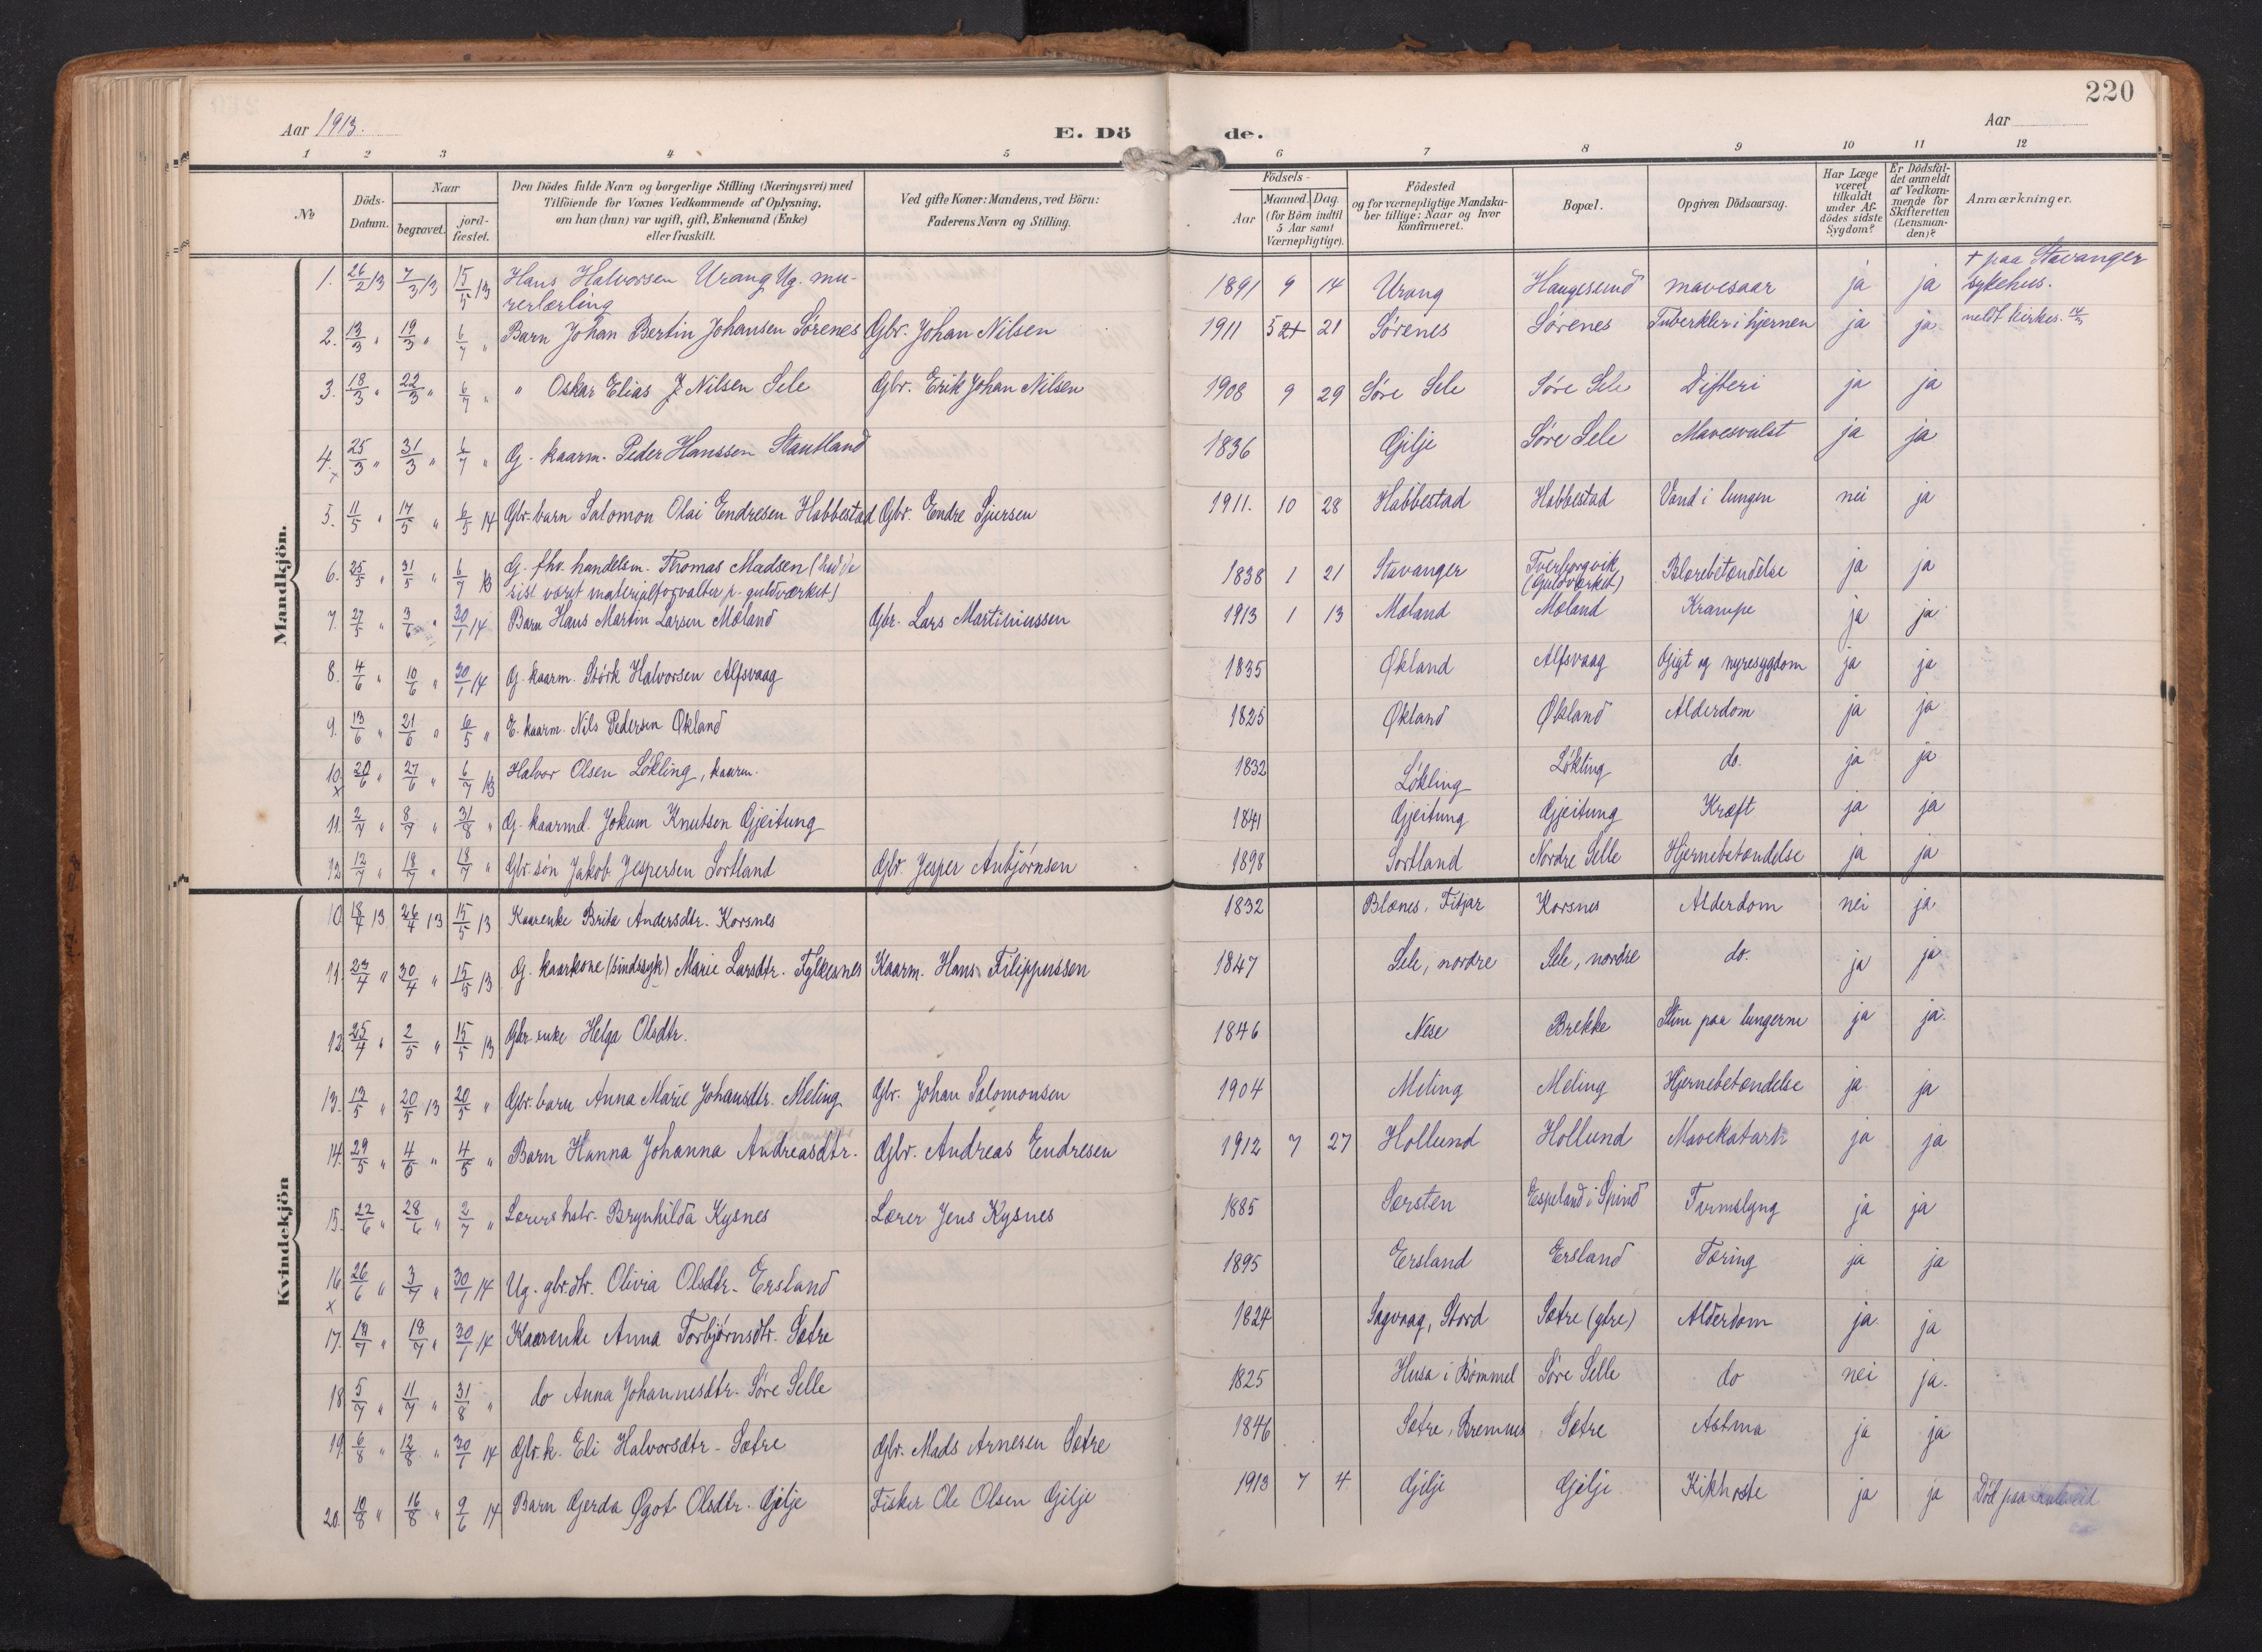 220
Aar 1913.
E. Dö de.
Aar
1 2 3 4 5 6 7 8 9 10 11 12
No
Döds-Datum.
Naar
begravet.
jord-fæstet.
Den Dödes fulde Navn og borgerlige Stilling (Næringsvei) med
Tilföiende for Voxnes Vedkommende af Oplysning,
om han (hun) var ugift, gift, Enkemand (Enke)
eller fraskilt.
Ved gifte Koner: Mandens, ved Börn:
Faderens Navn og Stilling.
Födsels-
Aar
Maaned. Dag.
(for Börn indtil
5 Aar samt
Værnepligtige).
Födested
og for værnepligtige Mandska-
ber tillige: Naar og hvor
konfirmeret.
Bopæl.
Opgiven Dödsaarsag.
Har Læge
været
tilkaldt
under Af-
dödes sidste
Sygdom?
Er Dödsfal-
det anmeldt
af Vedkom-
mende for
Skifteretten
(Lensman-
den)?
Anmærkninger.
Mandkjön.
1. 26/2 13 7/3 13 15/5 13 Hans Halvorsen Urang Ug. mu-
rerlærling 1891 9 14 Urang Haugesund mavesaar ja ja + paa Stavanger
sykehus.
2. 13/3 " 19/3 " 6/7 " Barn Johan Bertin Johansen Sørenes Gbr. Johan Nilsen 1911 5 21 Sørenes Sørenes Tuberkler i hjernen ja ja
3. 18/3 " 22/3 " 6/7 " " Oskar Elias J. Nilsen Sele Gbr. Erik Johan Nilsen 1908 9 29 Søre Sele Søre Sele Difteri ja ja
4. x 25/3 " 31/3 " 6/7 " G. kaarm. Peder Hanssen Stautland 1836 Gilje Søre Sele Mavesvulst ja ja
5. 11/5 " 17/5 " 6/5 14 Gbr. barn Salomon Olai Endresen Habbestad Gbr. Endre Sjursen 1911. 10 28 Habbestad Habbestad Vand i lungen nei ja
6. 25/5 " 31/5 " 6/7 13 G. fhv. handelsm. Thomas Madsen (hadde
sist været materialforvalter p. guldværket) 1838 1 21 Stavanger Tverborgvik
(Guldværket) Blærebetændelse ja ja
7. 27/5 " 3/6 " 30/1 14 Barn Hans Martin Larsen Mæland Gbr. Lars Martiniussen 1913 1 13 Mæland Mæland Krampe ja ja
8. 4/6 " 10/6 " 30/1 14 G. kaarm. Størk Halvorsen Alfsvaag 1835 Økland Alfsvaag Gigt og nyresygdom ja ja
9. 13/6 " 21/6 " 6/5 " E. kaarm. Nils Pedersen Økland 1825 Økland Økland Alderdom ja ja
10. x 20/6 " 27/6 " 6/7 13 Halvor Olsen Løkling, kaarm. 1832 Løkling Løkling do. ja ja
11. 2/7 " 8/7 " 31/8 " G. kaarmd. Jokum Knutsen Gjeitung 1841 Gjeitung Gjeitung Kræft ja ja
12. 12/7 " 18/7 " 18/7 " Gbr. søn Jakob Jespersen Sortland Gbr. Jesper Anbjørnsen 1898 Sortland Nordre Selle Hjernebetændelse ja ja
Kvindekjön
10. 18/4 13 26/4 13 15/5 13 Kaarenke Brita Andersdtr. Korsnes 1832 Blænes, Fitjar Korsnes Alderdom nei ja
11. 23/4 " 30/4 " 15/5 13 G. kaarkone (sindssyk) Marie Larsdtr. Fylkesnes Kaarm. Hans Filippussen 1847 Sele, nordre Sele, nordre do. ja ja
12. 25/4 " 2/5 " 15/5 13 Gbr. enke Helga Olsdtr. 1846 Nese Brekke Slim paa lungerne ja ja.
13. 13/5 " 20/5 13 20/5 " Gbr. barn Anna Marie Johansdtr. Meling Gbr. Johan Salomonsen 1904 Meling Meling Hjernebetændelse ja ja
14. 29/5 " 4/6 " 4/5 " Barn Hanna Johanna Andreasdtr. Gbr. Andreas Endresen 1912 7 27 Hollund Hollund Mavekatarh ja ja
15. 22/6 " 28/6 " 2/7 " Lærers hstr. Brynhilda Kysnes Lærer Jens Kysnes 1885 Særsten Espeland i Spind Tarmslyng ja ja
16. x 26/6 " 3/7 " 30/1 14 Ug. gbr.dtr. Olivia Olsdtr. Ersland 1895 Eersland Ersland Tæring ja ja
17. 12/7 " 18/7 " 30/1 14 Kaarenke Anna Torbjørnsdtr. Sætre 1824 Sagvaag, Stord Sætre (ytre) Alderdom ja ja
18. 5/7 " 11/7 " 31/8 " do Anna Johannesdtr. Søre Selle 1825 Husa i Bømmel Søre Selle do nei ja.
19. 6/8 " 12/8 " 30/1 14 Gbr. k. Eli Halvorsdtr. Sætre Gbr. Mads Arnesen Sætre 1846 Sætre, Bremnes Sætre Astma ja ja
20. 10/8 " 16/8 " 9/6 14 Barn Gerda Ågot Olsdtr. Gilje Fisker Ole Olsen Gilje 1913 7 4 Gilje Gilje Kikhoste ja ja Död paa